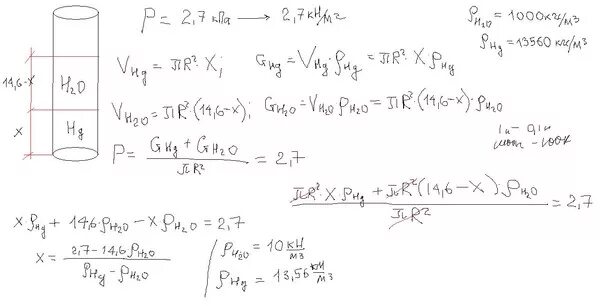 P = 2,7 кПа → 2,7 кН/м²
ρH₂O = 1000 кг/м³
ρHg = 13560 кг/м³
14,6-x
H₂O
x
Hg
VHg = πR²·X; GHg = VHg·ρHg = πR²·XρHg
VH₂O = πR²·(14,6-x); GH₂O = VH₂O ρH₂O = πR²·(14,6-x)·ρH₂O
P = (GHg + GH₂O)/πR² = 2,7
(πR²·XρHg + πR²(14,6-X)·ρH₂O)/πR² = 2,7
x·ρHg + 14,6·ρH₂O - xρH₂O = 2,7
x = (2,7-14,6ρH₂O)/(ρHg-ρH₂O)
ρH₂O = 10 кН/м³
ρHg = 13,56 кН/м³